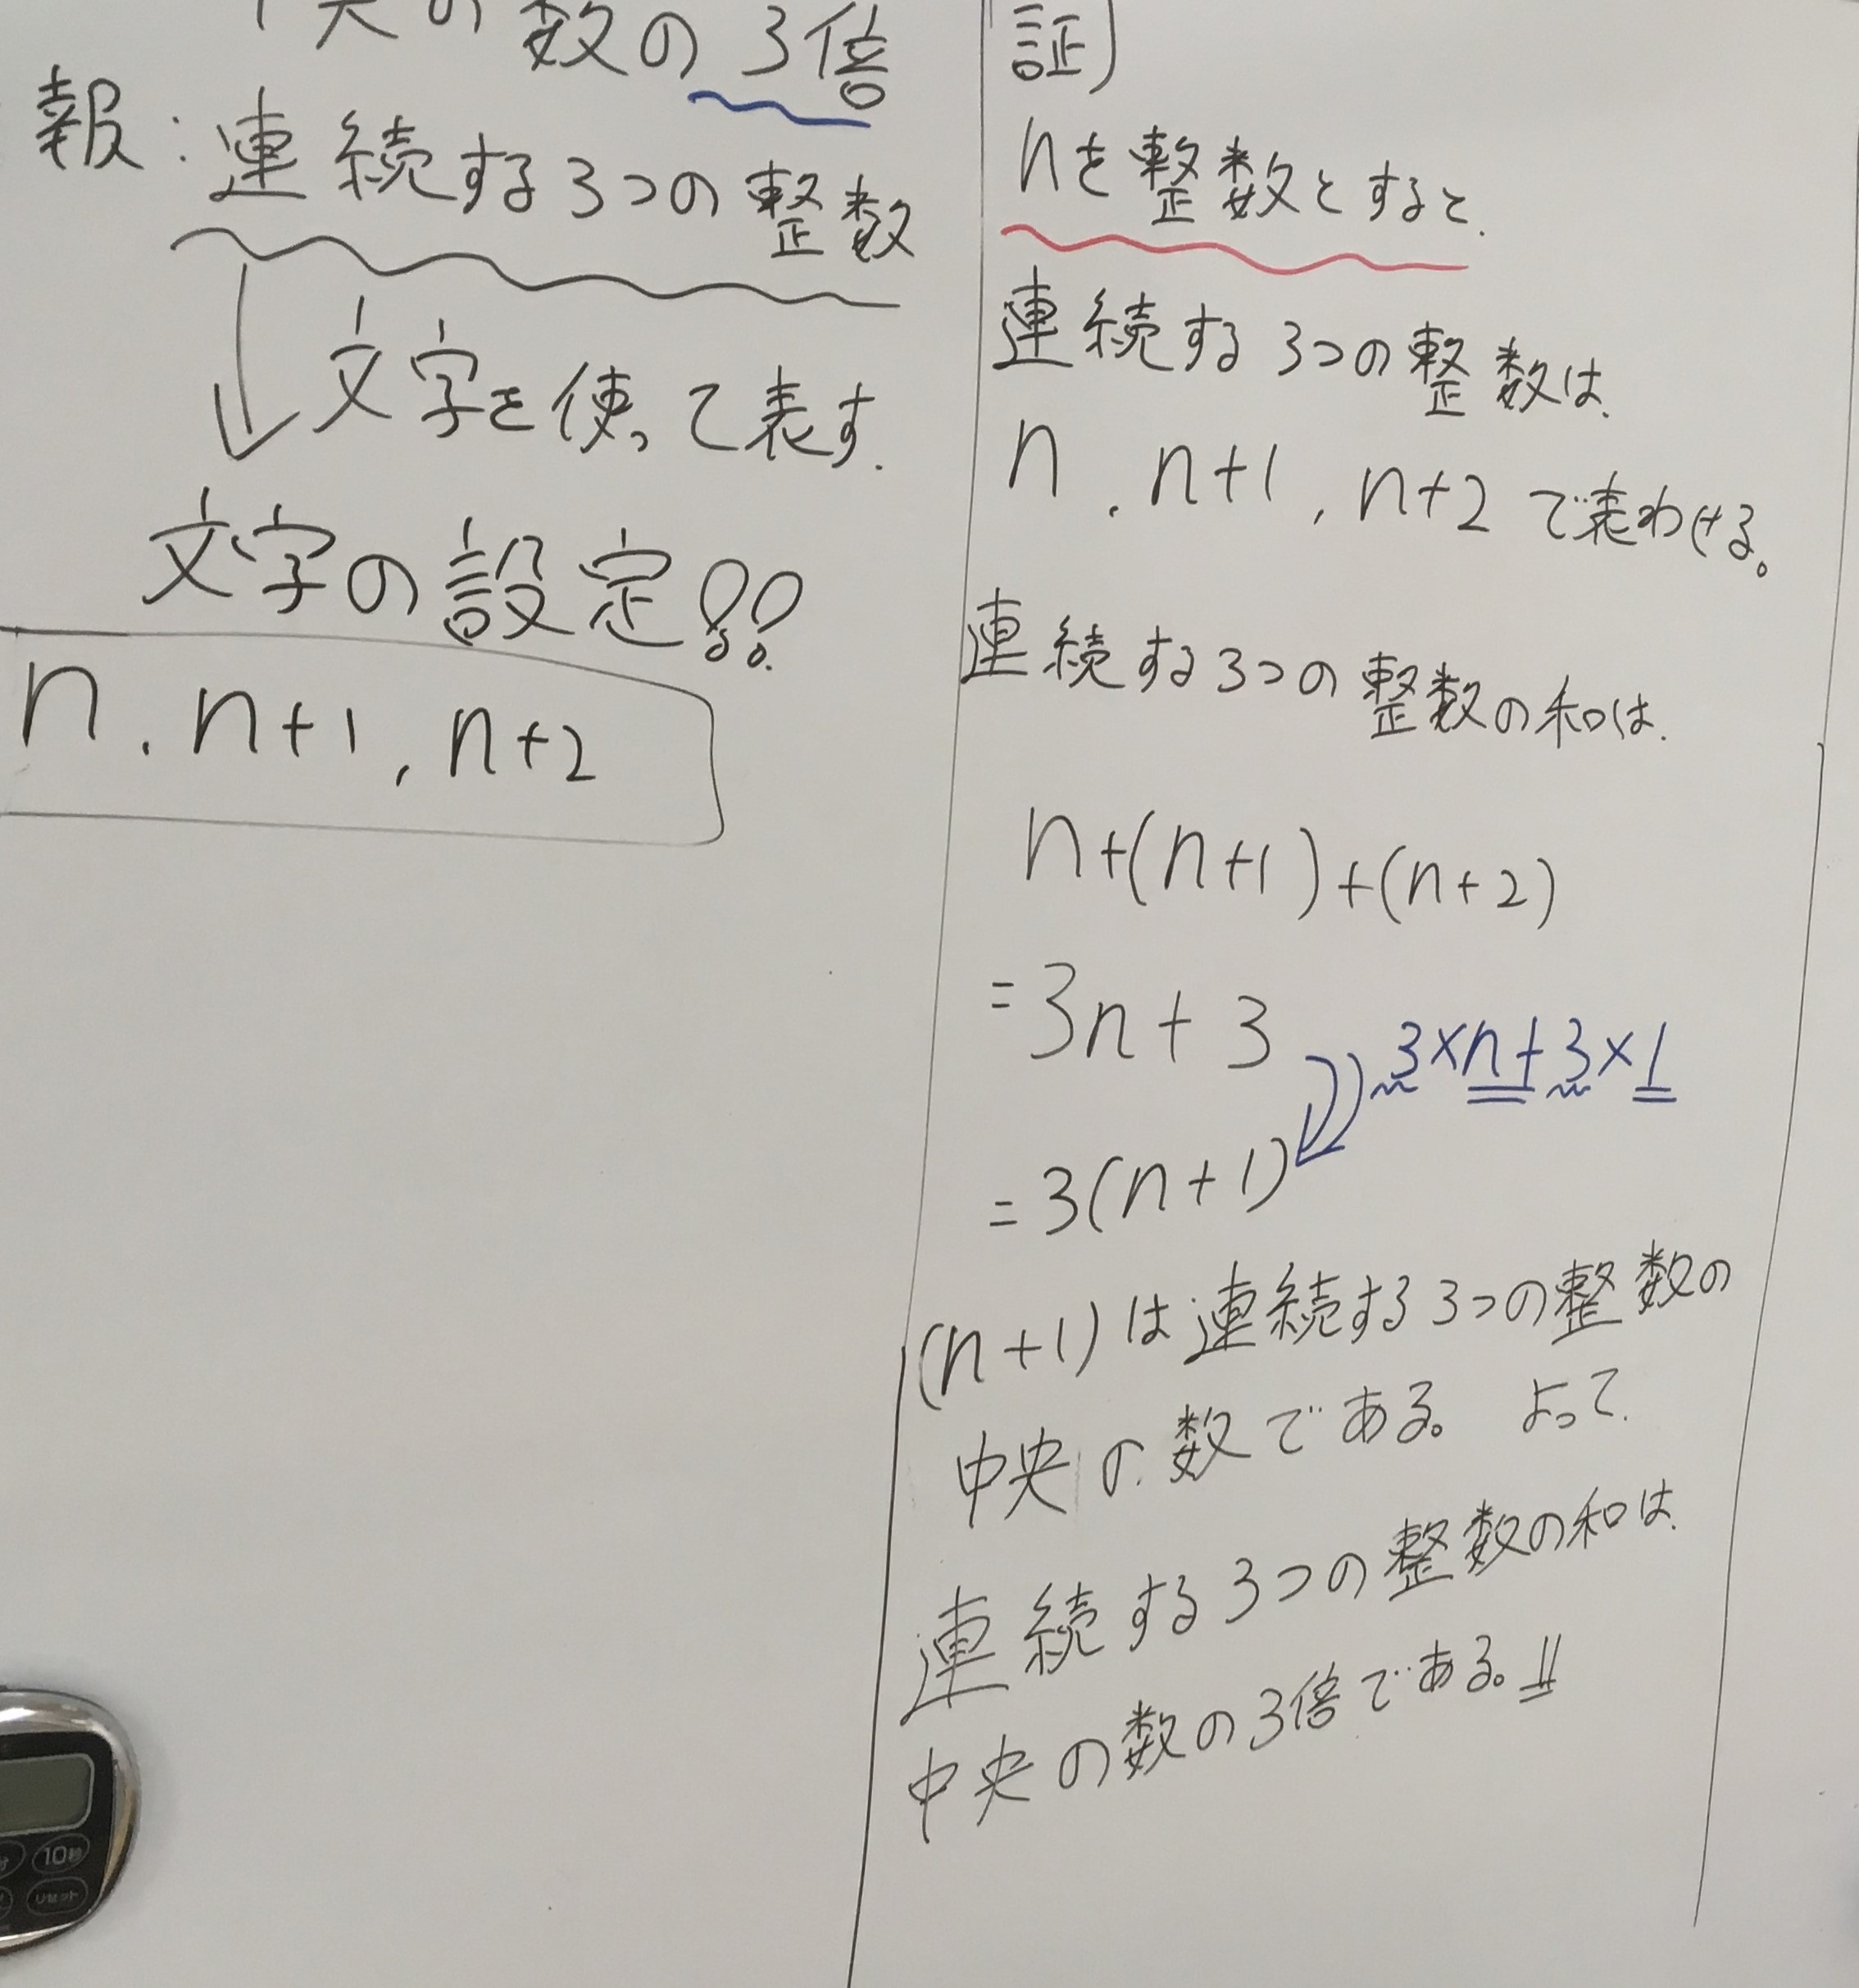 の数の3倍
報:連続する3つの整数
文字を使って表す.
文字の設定!!
n, n+1, n+2
証)
nを整数とすると,
連続する3つの整数は,
n, n+1, n+2で表わせる。
連続する3つの整数の和は,
n+(n+1)+(n+2)
=3n+3
3×n+3×1
=3(n+1)
(n+1)は連続する3つの整数の
中央の数である。よって,
連続する3つの整数の和は,
中央の数の3倍である。
10秒
リセット